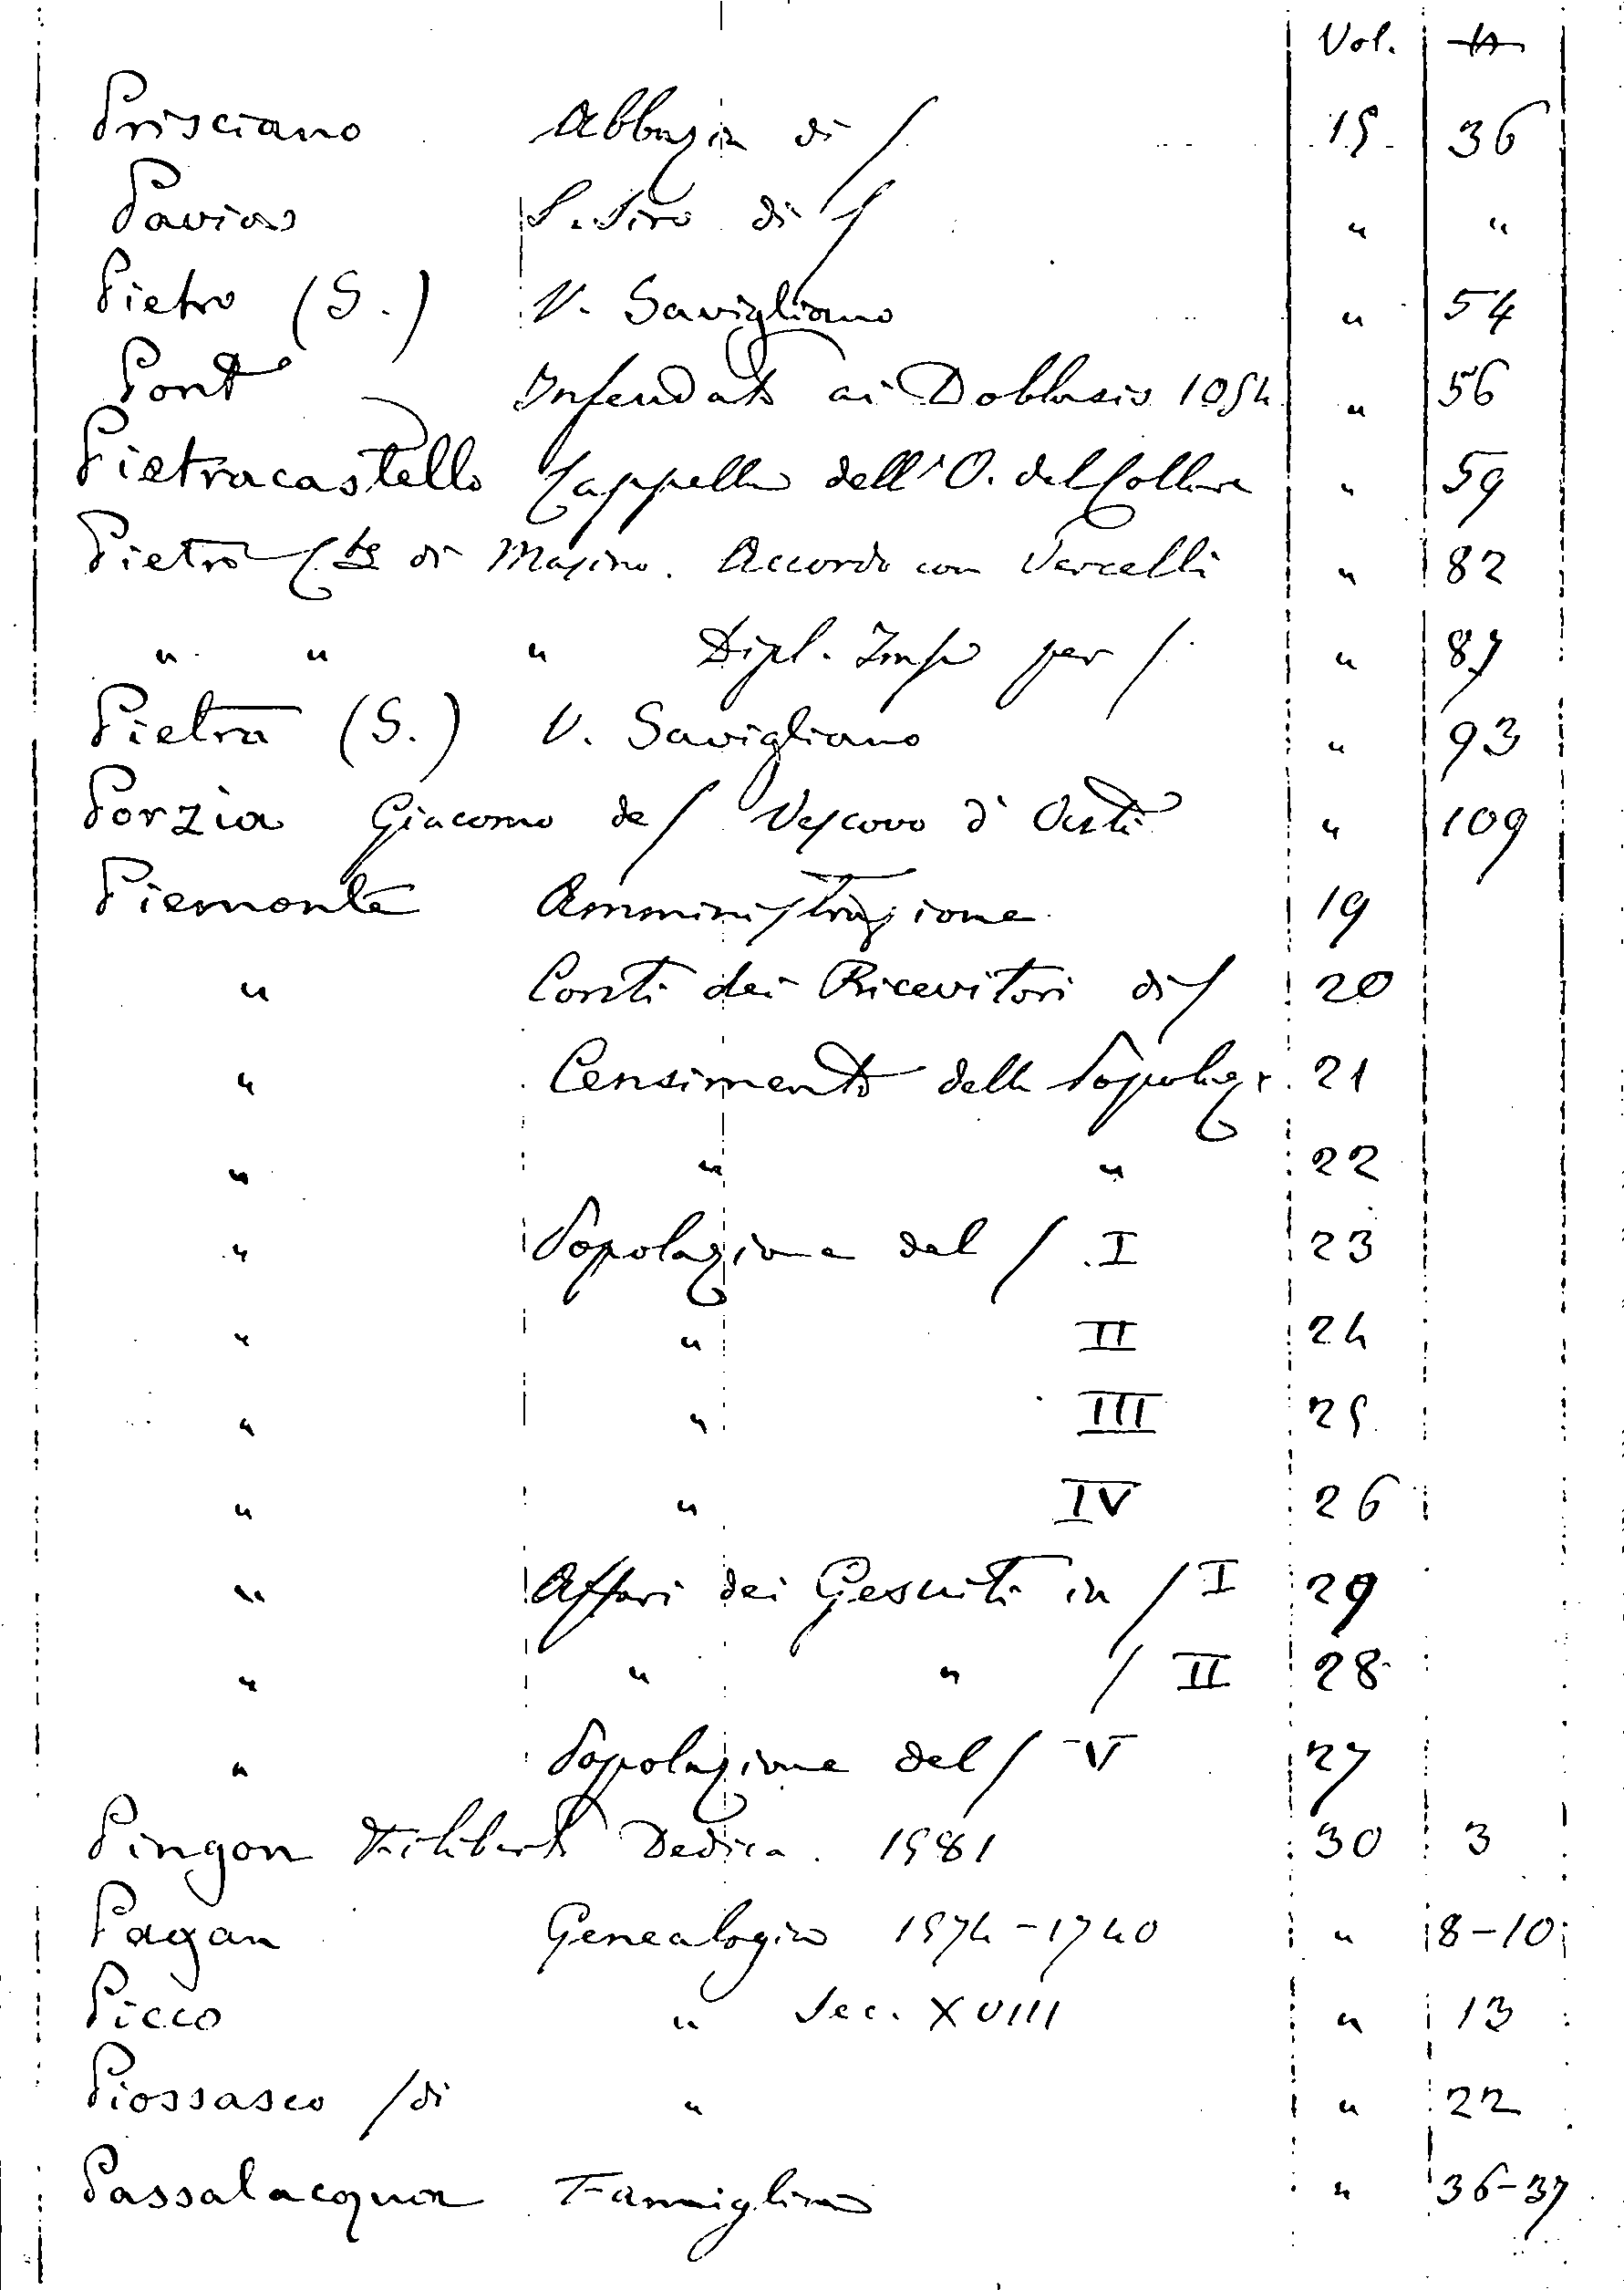 Vol. n
Prisciano Abbazia di / 15 36
Pavia S. Siro di / " "
Pietro (S.) V. Savigliano " 54
Pont Infeudato ai Doblazio 1054 " 56
Pietracastello Cappella dell'O. del Collare " 59
Pietro Cte di Masino. Accordo con Vercelli " 82
" " " Dipl. Imp per / " 87
Pietra (S.) V. Savigliano " 93
Porzia Giacomo de / Vescovo d'Asti " 109
Piemonte Amministrazione 19
" Conti dei Ricevitori di / 20
" Censimento della Popolaz. 21
" " " 22
" Popolazione del / I 23
" " II 24
" " III 25
" " IV 26
" Affari dei Gesuiti in / I 29
" " " / II 28
" Popolazione del / V 27
Pingon Filiberto Dedica. 1581 30 3
Pagan Genealogia 1574-1740 " 8-10
Picco " Sec. XVIII " 13
Piossasco / di " " 22
Passalacqua Famiglia " 36-37